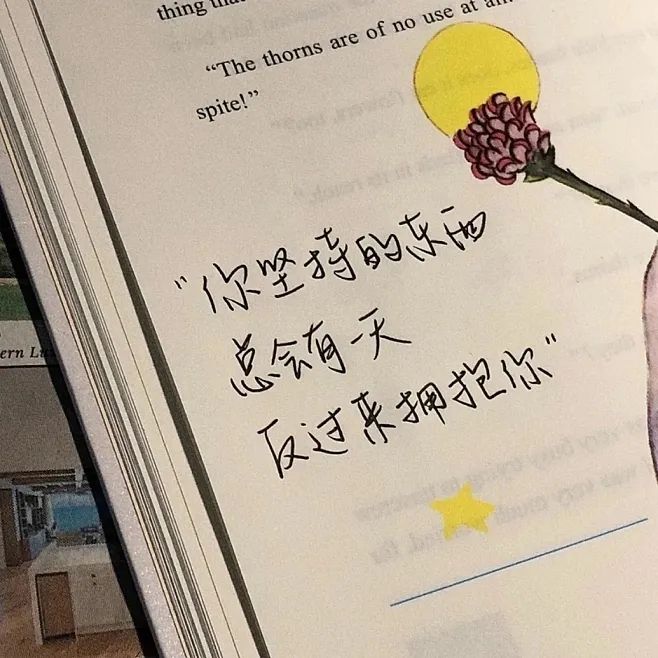 thing tha
“The thorns are of no use at
spite!”
"你坚持的东西
总会有一天
反过来拥抱你"
ern Li